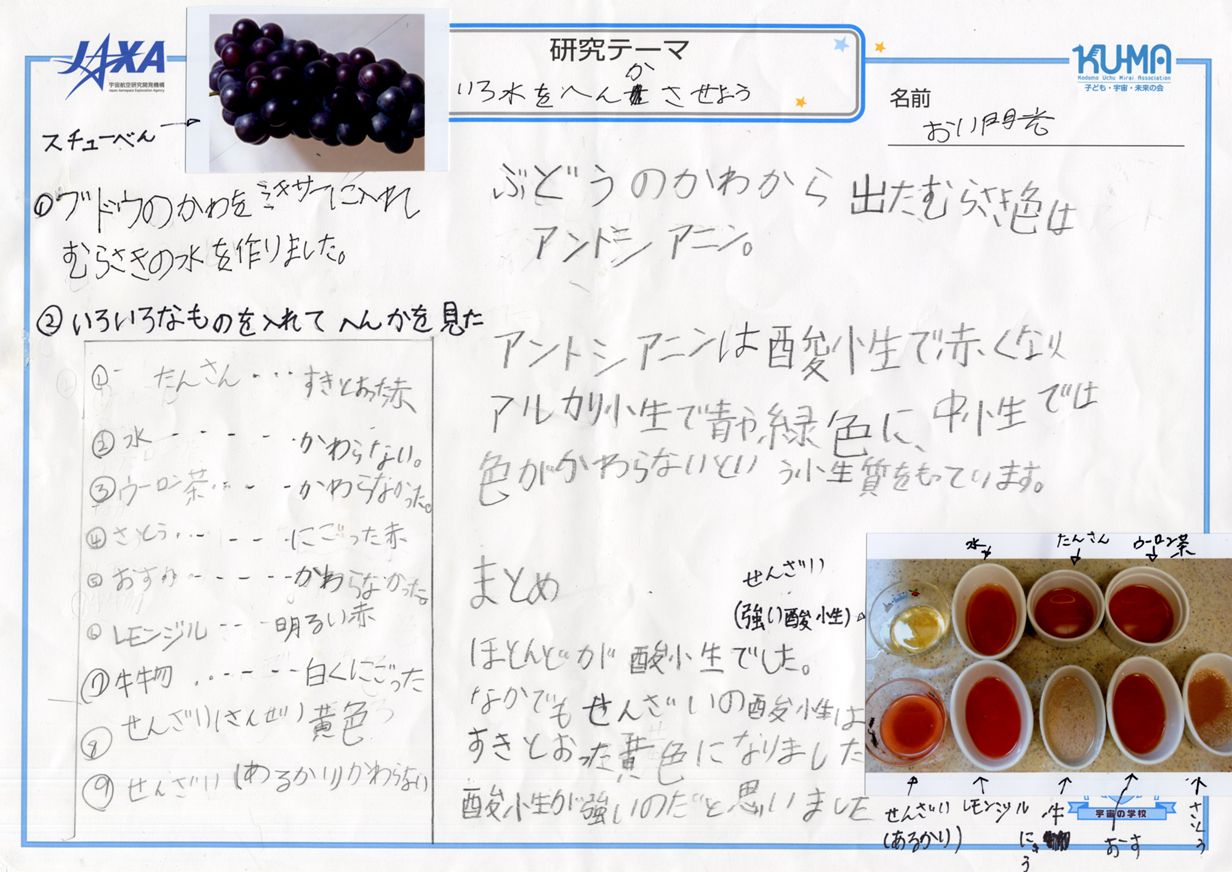 JAXA
宇宙航空研究開発機構
Japan Aerospace Exploration Agency
研究テーマ
いろ水をへんかさせよう
KUMA
Kodomo Uchu Mirai Association
子ども・宇宙・未来の会
名前
スチューベん
①ブドウのかわをミキサーに入れ
むらさきの水を作りました。
②いろいろなものを入れてへんかを見た
① たんさん・・・すきとおった赤
②水 - - - - ・かわらない。
③ウーロン茶・・- - -かわらなかった。
④さとう・・- - - -にごった赤
⑤おす - - - - - -かわらなかった。
⑥レモンジル - - -明るい赤
⑦牛牛物 ・・- - - -白くにごった
⑧せんざい(さんせい)黄色
⑨せんざい(あるかり)かわらない
ぶどうのかわから出たむらさき色は
アントシアニン。
アントシアニンは酸小生で赤くなり
アルカリ小生で青や緑色に、中小生では
色がかわらないという小生質をもっています。
まとめ
ほとんどが酸小生でした。
なかでもせんざいの酸小生は
すきとおった黄色になりました
酸小生が強いのだと思いました
せんざい
(強い酸小生)
水
たんさん
ウーロン茶
せんざい
(あるかり)
レモンジル
牛
にゅう
おーす
さとう
宇宙の学校